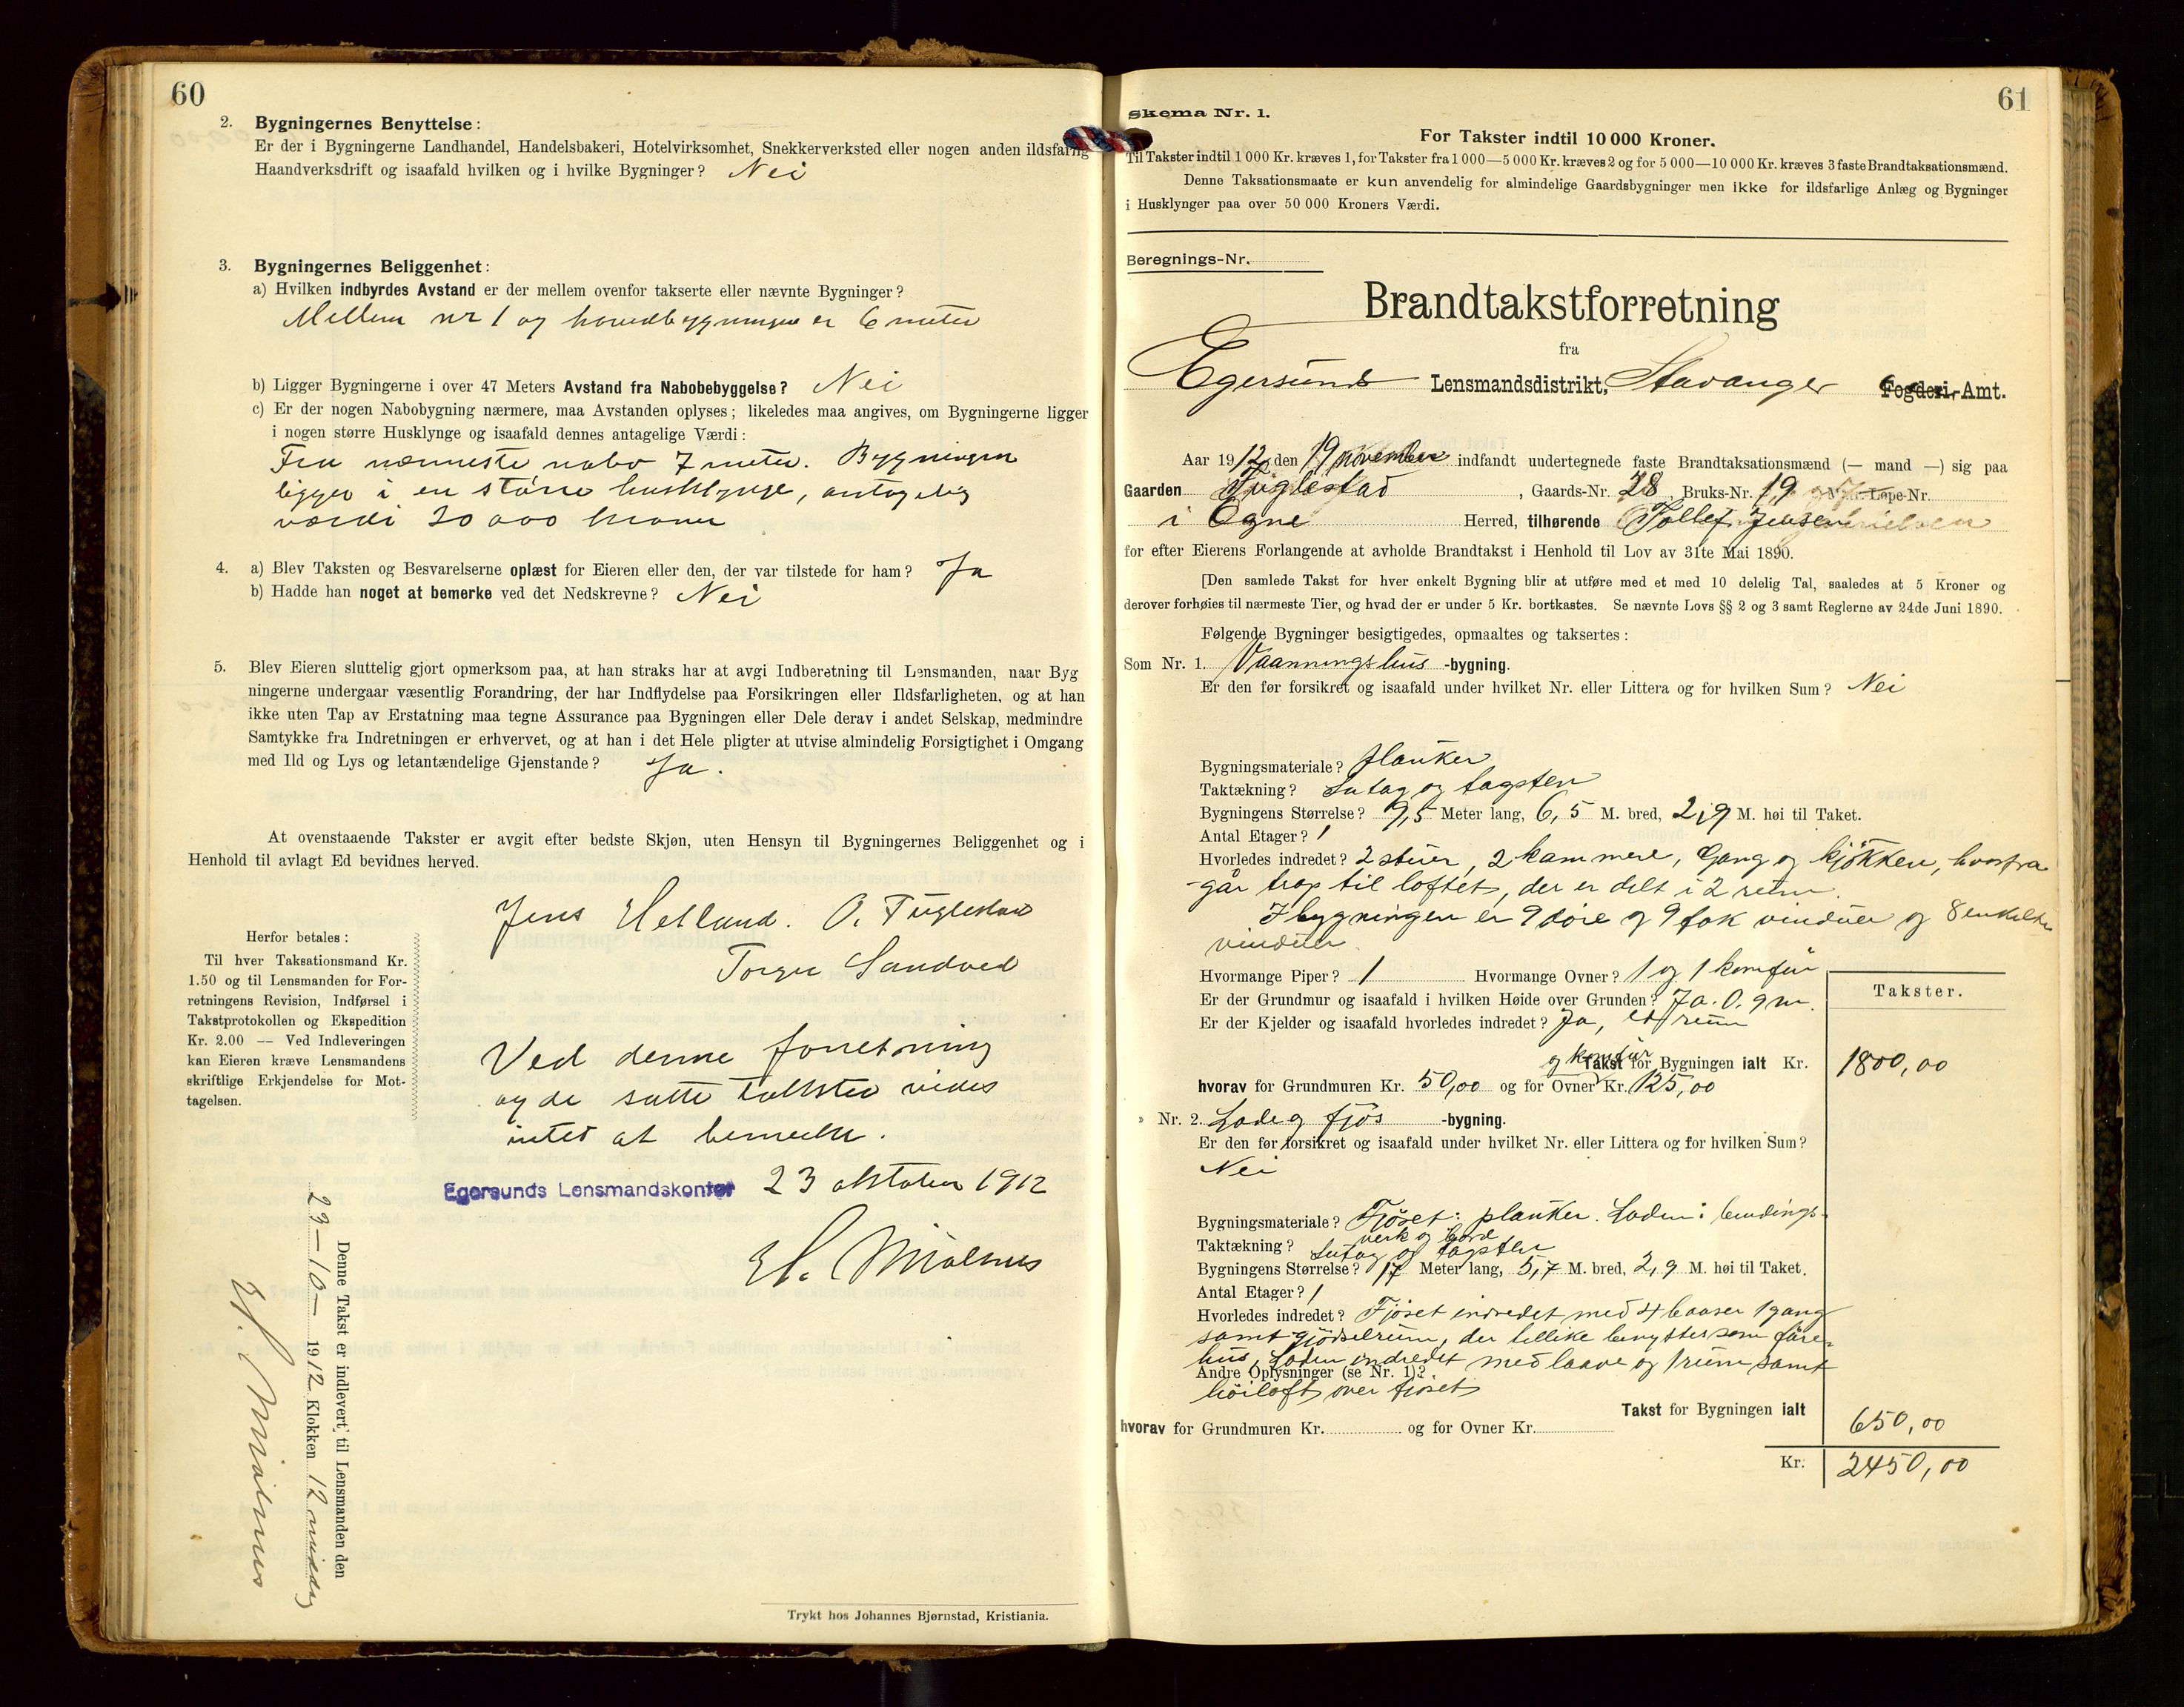 60
2. Bygningernes Benyttelse:
Er der i Bygningerne Landhandel, Handelsbakeri, Hotelvirksomhet, Snekkerverksted eller nogen anden ildsfarlig
Haandverksdrift og isaafald hvilken og i hvilke Bygninger? Nei
3. Bygningernes Beliggenhet:
a) Hvilken indbyrdes Avstand er der mellem ovenfor takserte eller nævnte Bygninger?
Mellem nr 1 og hovedbygningen er 6 meter
b) Ligger Bygningerne i over 47 Meters Avstand fra Nabobebyggelse? Nei
c) Er der nogen Nabobygning nærmere, maa Avstanden oplyses; likeledes maa angives, om Bygningerne ligger
i nogen større Husklynge og isaafald dennes antagelige Værdi:
Fra nærmeste nabo 7 meter. Bygningen
ligger i en större husklynge, antagelig
værdi 20 000 kroner
4. a) Blev Taksten og Besvarelserne oplæst for Eieren eller den, der var tilstede for ham? Ja
b) Hadde han noget at bemerke ved det Nedskrevne? Nei
5. Blev Eieren sluttelig gjort opmerksom paa, at han straks har at avgi Indberetning til Lensmanden, naar Byg
ningerne undergaar væsentlig Forandring, der har Indflydelse paa Forsikringen eller Ildsfarligheten, og at han
ikke uten Tap av Erstatning maa tegne Assurance paa Bygningen eller Dele derav i andet Selskap, medmindre
Samtykke fra Indretningen er erhvervet, og at han i det Hele pligter at utvise almindelig Forsigtighet i Omgang
med Ild og Lys og letantændelige Gjenstande? Ja.
At ovenstaaende Takster er avgit efter bedste Skjøn, uten Hensyn til Bygningernes Beliggenhet og i
Henhold til avlagt Ed bevidnes herved.
Jens Helland. O. Fuglestad
Torger Sandved
Herfor betales:
Til hver Taksationsmand Kr.
1.50 og til Lensmanden for For-
retningens Revision, Indførsel i
Takstprotokollen og Ekspedition
Kr. 2.00 — Ved Indleveringen
kan Eieren kræve Lensmandens
skriftlige Erkjendelse for Mot-
tagelsen.
Ved denne forretning
og de satte takster vides
intet at bemerke.
Egersunds Lensmandskontor 23 oktober 1912
Denne Takst er indlevert til Lensmanden den
23–10– 1912 Klokken 12 middag
Trykt hos Johannes Bjørnstad, Kristiania.
61
Skema Nr. 1.
For Takster indtil 10 000 Kroner.
Til Takster indtil 1 000 Kr. kræves 1, for Takster fra 1 000—5 000 Kr. kræves 2 og for 5 000—10 000 Kr. kræves 3 faste Brandtaksationsmænd.
Denne Taksationsmaate er kun anvendelig for almindelige Gaardsbygninger men ikke for ildsfarlige Anlæg og Bygninger
i Husklynger paa over 50 000 Kroners Værdi.
Beregnings-Nr.
Brandtakstforretning
fra
Egersund Lensmandsdistrikt, Stavanger Fogderi, Amt.
Aar 1912, den 19 november indfandt undertegnede faste Brandtaksationsmænd (— mand —) sig paa
Gaarden Fuglestad, Gaards-Nr. 28, Bruks-Nr. 19 Løpe-Nr.
i Ogne Herred, tilhørende Tollef Jensen
for efter Eierens Forlangende at avholde Brandtakst i Henhold til Lov av 31te Mai 1890.
[Den samlede Takst for hver enkelt Bygning blir at utføre med et med 10 delelig Tal, saaledes at 5 Kroner og
derover forhøies til nærmeste Tier, og hvad der er under 5 Kr. bortkastes. Se nævnte Lovs §§ 2 og 3 samt Reglerne av 24de Juni 1890.
Følgende Bygninger besigtigedes, opmaaltes og taksertes:
Som Nr. 1. Vaanningshus -bygning.
Er den før forsikret og isaafald under hvilket Nr. eller Littera og for hvilken Sum? Nei
Bygningsmateriale? Planker
Taktækning? Sutag og tagsten
Bygningens Størrelse? 9,5 Meter lang, 6,5 M. bred, 2,9 M. høi til Taket.
Antal Etager? 1
Hvorledes indredet? 2 stuer, 2 kammere, Gang og kjökken, hvorfra
går trap til loftet, der er delt i 2 rum.
I bygningen er 9 döre og 9 fak vinduer og 8 enkelte
vinduer.
Hvormange Piper? 1 Hvormange Ovner? 1 og 1 komfur
Er der Grundmur og isaafald i hvilken Høide over Grunden? Ja. 0.9 m.
Er der Kjelder og isaafald hvorledes indredet? Ja, et rum
Takster.
og komfur
Takst for Bygningen ialt Kr. 1800,00
hvorav for Grundmuren Kr. 50,00 og for Ovner Kr. 125,00
Nr. 2. Lade og fjös -bygning.
Er den før forsikret og isaafald under hvilket Nr. eller Littera og for hvilken Sum?
Nei
Bygningsmateriale? Fjöset: planker. Laden: bindings-
verk og bord
Taktækning? Sutag og tagsten
Bygningens Størrelse? 17 Meter lang, 5,7 M. bred, 2,9 M. høi til Taket.
Antal Etager? 1
Hvorledes indredet? Fjöset indredet med 4 baaser 1 gang
samt gjödselrum, der tillike benyttes som faare-
hus, Laden indredet med laave og 1 rum samt
Andre Oplysninger (se Nr. 1)?
höiloft over fjöset
Takst for Bygningen ialt 650,00
hvorav for Grundmuren Kr. og for Ovner Kr.
Kr. 2450,00